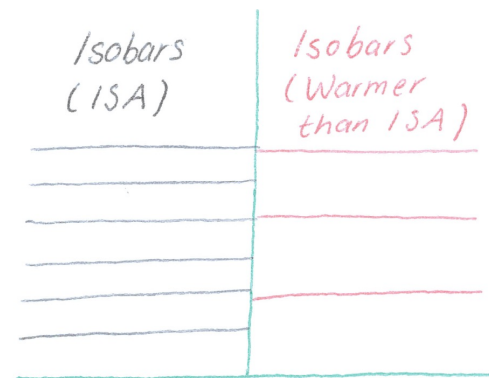 Isobars
(ISA)
Isobars
(Warmer
than ISA)